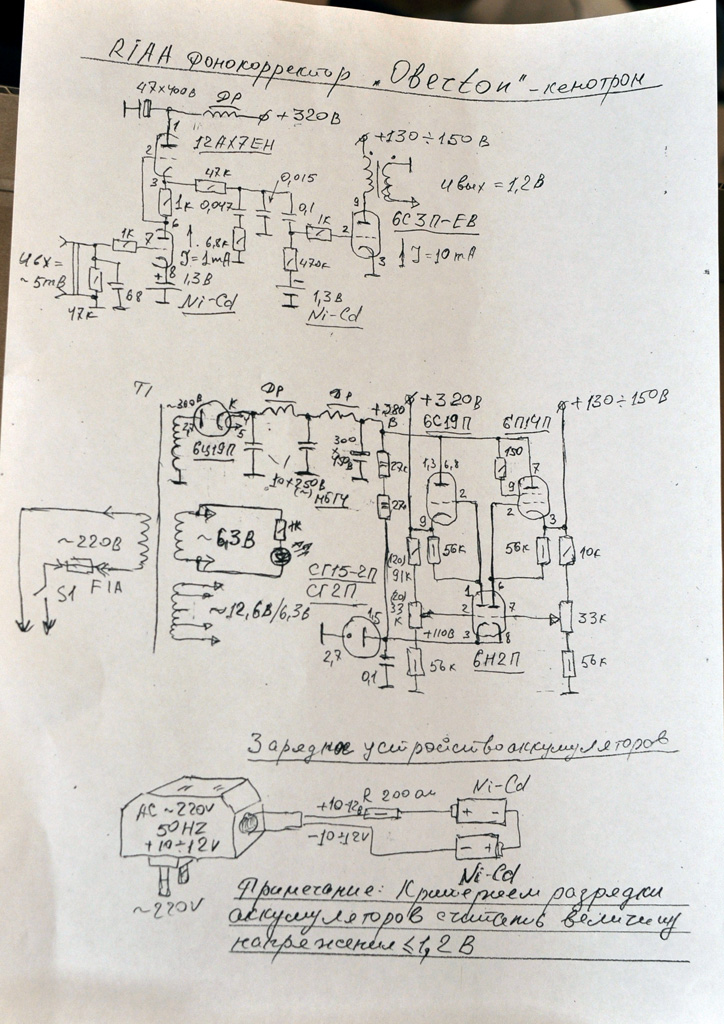 RIAA фонокорректор „Oberton“ - кенотрон
47×400В
Др
+320В
1
12AX7EH
2
3
47к
0,015
1к
0,047
0,1
6
1к
7
6,8к
J=1mA
8
1,3В
Ni-Cd
Uвх=
~5mВ
68
47к
1к
470к
1,3В
Ni-Cd
+130÷150В
Uвых = 1,2В
9
6С3П-ЕВ
2
J=10mA
3
Т1
~300В
2,7
К
5
6Ц19П
Др
Др
10×250В
(~) МБГЧ
+380В
27к
27к
~220В
S1
F1A
~6,3В
1к
~12,6В/6,3В
СГ15-2П
СГ2П
1,5
2,7
0,1
+320В
6С19П
6П14П
+130÷150В
1,3
6,8
2
150
7
9
2
9
3
56к
56к
10к
(120)
91к
(20)
33
к
1
6
2
7
33к
+110В
3
8
56к
6Н2П
56к
Зарядное устройство аккумуляторов
AC ~220V
50HZ
+10÷12V
~220V
+10-12В
R 200 ом
-10÷12V
Ni-Cd
+ -
- +
Ni-Cd
Примечание: Критерием разрядки
аккумуляторов считать величину
напряжения ≤1,2 В